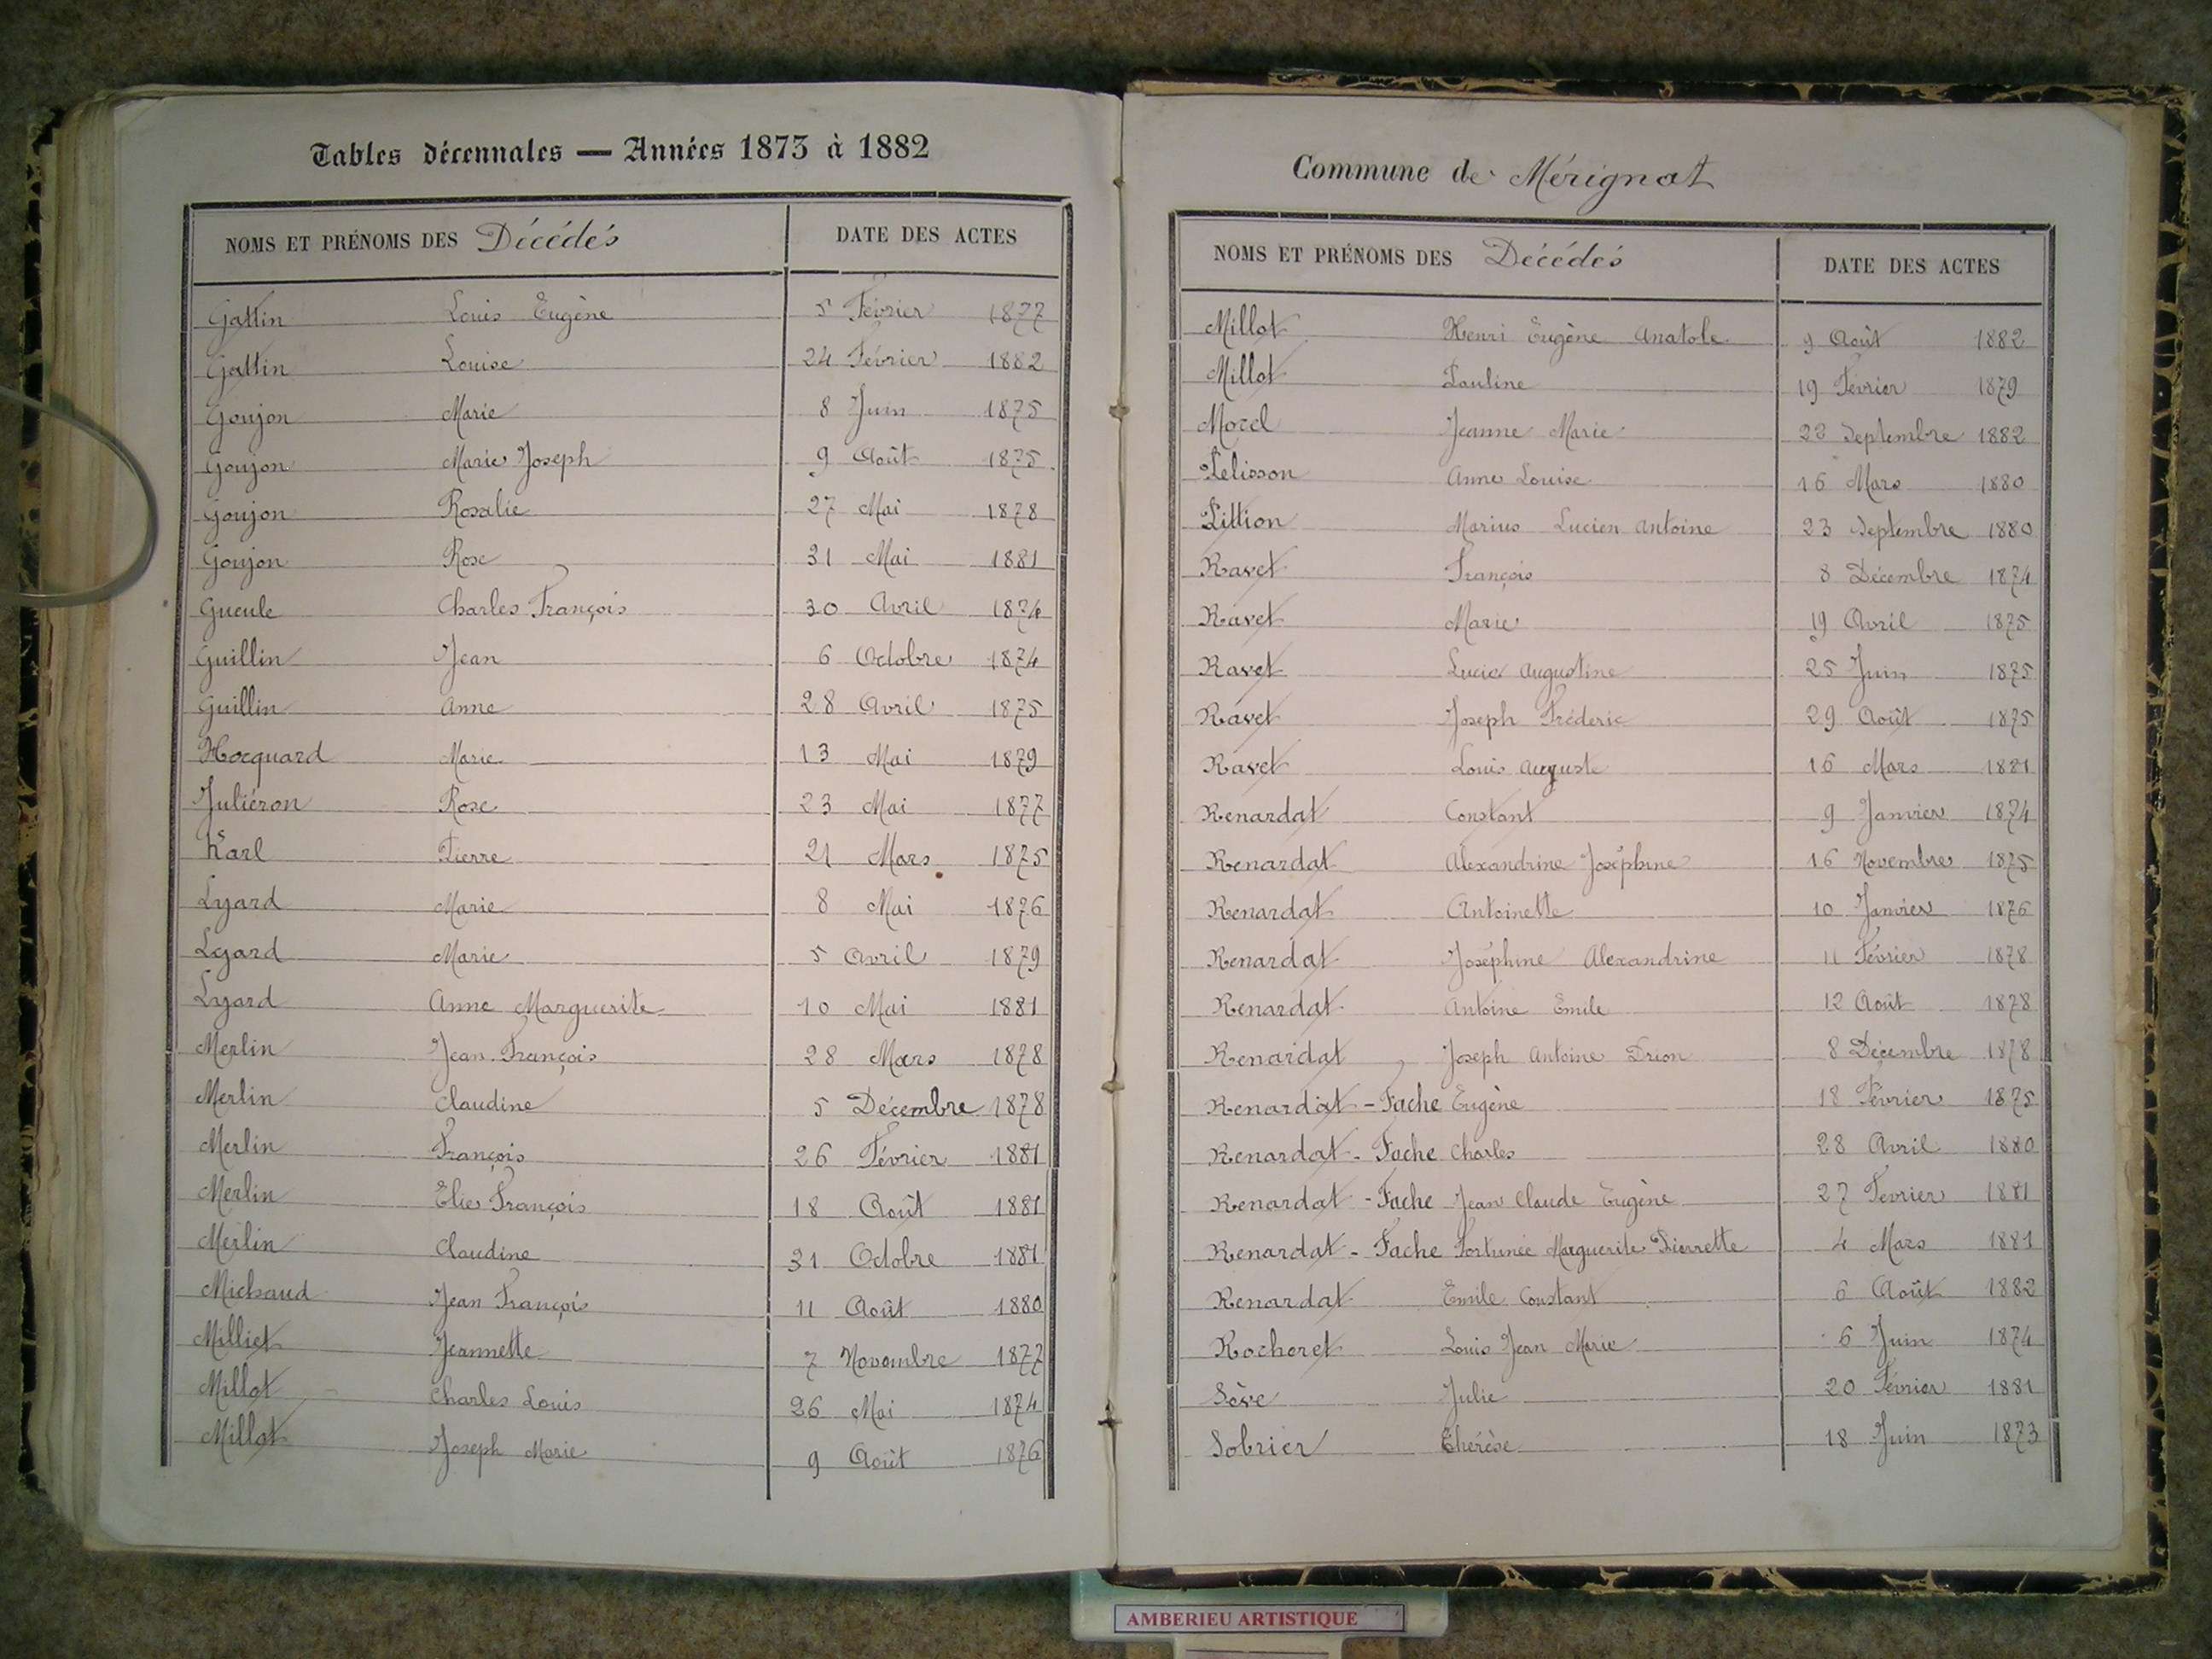 Tables décennales — Années 1873 à 1882
NOMS ET PRÉNOMS DES Décédés DATE DES ACTES
Gattin Louis Eugène 5 Février 1877
Gattin Louise 24 Février 1882
Goujon Marie 8 Juin 1875
Goujon Marie Joseph 9 Août 1875
Goujon Rosalie 27 Mai 1878
Goujon Rose 31 Mai 1881
Gueule Charles François 30 Avril 1874
Guillin Jean 6 Octobre 1874
Guillin Anne 28 Avril 1875
Hocquard Marie 13 Mai 1879
Juliéron Rose 23 Mai 1877
Karl Pierre 21 Mars 1875
Lyard Marie 8 Mai 1876
Lyard Marie 5 Avril 1879
Lyard Anne Marguerite 10 Mai 1881
Merlin Jean François 28 Mars 1878
Merlin Claudine 5 Décembre 1878
Merlin François 26 Février 1881
Merlin Elie François 18 Août 1881
Merlin Claudine 31 Octobre 1881
Michaud Jean François 11 Août 1880
Milliet Jeannette 7 Novembre 1877
Millot Charles Louis 26 Mai 1874
Millot Joseph Marie 9 Août 1876
Commune de Mérignat
NOMS ET PRÉNOMS DES Décédés DATE DES ACTES
Millot Henri Eugène Anatole 9 Août 1882
Millot Pauline 19 Février 1879
Morel Jeanne Marie 22 Septembre 1882
Pelisson Anne Louise 16 Mars 1880
Pittion Marius Lucien Antoine 23 Septembre 1880
Ravet François 8 Décembre 1874
Ravet Marie 19 Avril 1875
Ravet Lucie Augustine 25 Juin 1875
Ravet Joseph Fréderic 29 Août 1875
Ravet Louis Auguste 16 Mars 1881
Renardat Constant 9 Janvier 1874
Renardat Alexandrine Joséphine 16 Novembre 1875
Renardat Antoinette 10 Janvier 1876
Renardat Joséphine Alexandrine 11 Février 1878
Renardat Antoine Emile 12 Août 1878
Renardat Joseph Antoine Drion 8 Décembre 1878
Renardat - Fache Eugène 18 Février 1875
Renardat - Fache Charles 28 Avril 1880
Renardat - Fache Jean Claude Eugène 27 Février 1881
Renardat - Fache Fortunée Marguerite Pierrette 4 Mars 1881
Renardat Emile Constant 6 Août 1882
Rocheret Louis Jean Marie 6 Juin 1874
Sève Julie 20 Février 1881
Sobrier Thérèse 18 Juin 1873
AMBERIEU ARTISTIQUE